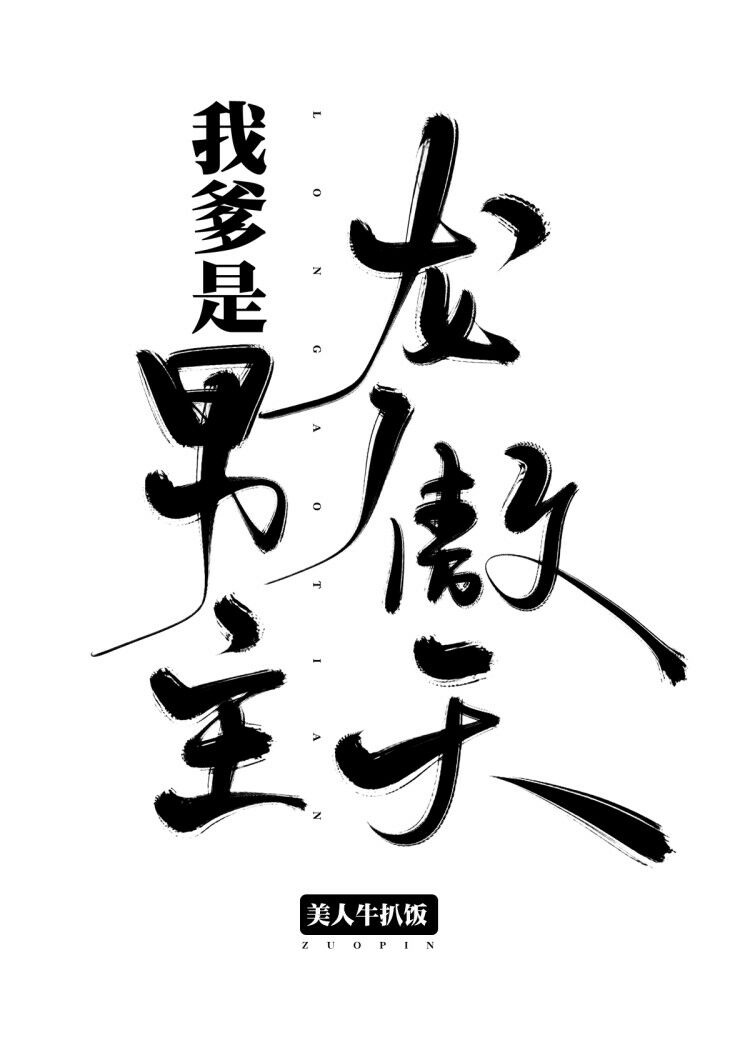 我爹是男主
龙傲天
LONGAOTIAN
美人牛扒饭
ZUOPIN